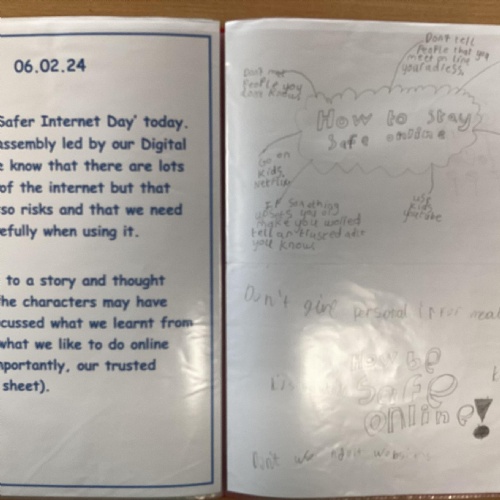 06.02.24
Safer Internet Day' today.
assembly led by our Digital
e know that there are lots
of the internet but that
so risks and that we need
efully when using it.
to a story and thought
he characters may have
cussed what we learnt from
what we like to do online
portantly, our trusted
sheet).
Dont tell
people that you
meet on line
your adress.
Dont
people you
dont know.
How to stay
Safe online
Go on
kids
netflix
use
kids
youtube
IF something
upsets you or
make you worried
tell an trusted adu
you know.
Don't give personal
How be
Safe
online!
Don't